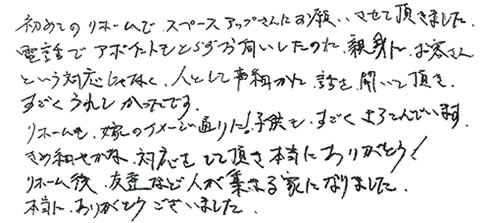 初めてのリホームで、スペースアップさんにお願いさせて頂きました.
電話でアポイントもとらずお伺いしたのに、親身に、お客さん
という対応じゃなく、人として事細かに話を聞いて頂き、
すごくうれしかったです.
リホームも、嫁のイメージ通りに!子供も、すごくよろこんでいます.
きめ細やかな、対応をして頂き本当にありがとう!
リホーム後、友達など人が集まる家になりました.
本当に、ありがとうございました.